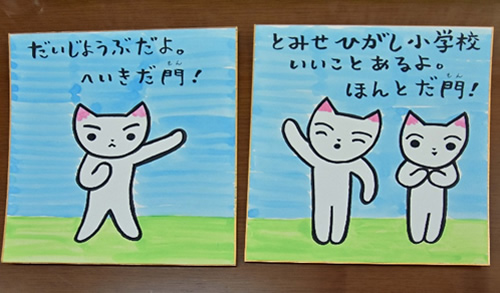 だいじょうぶだよ。
へいきだ門！
もん
とみせひがし小学校
いいことあるよ。
ほんとだ門！
もん